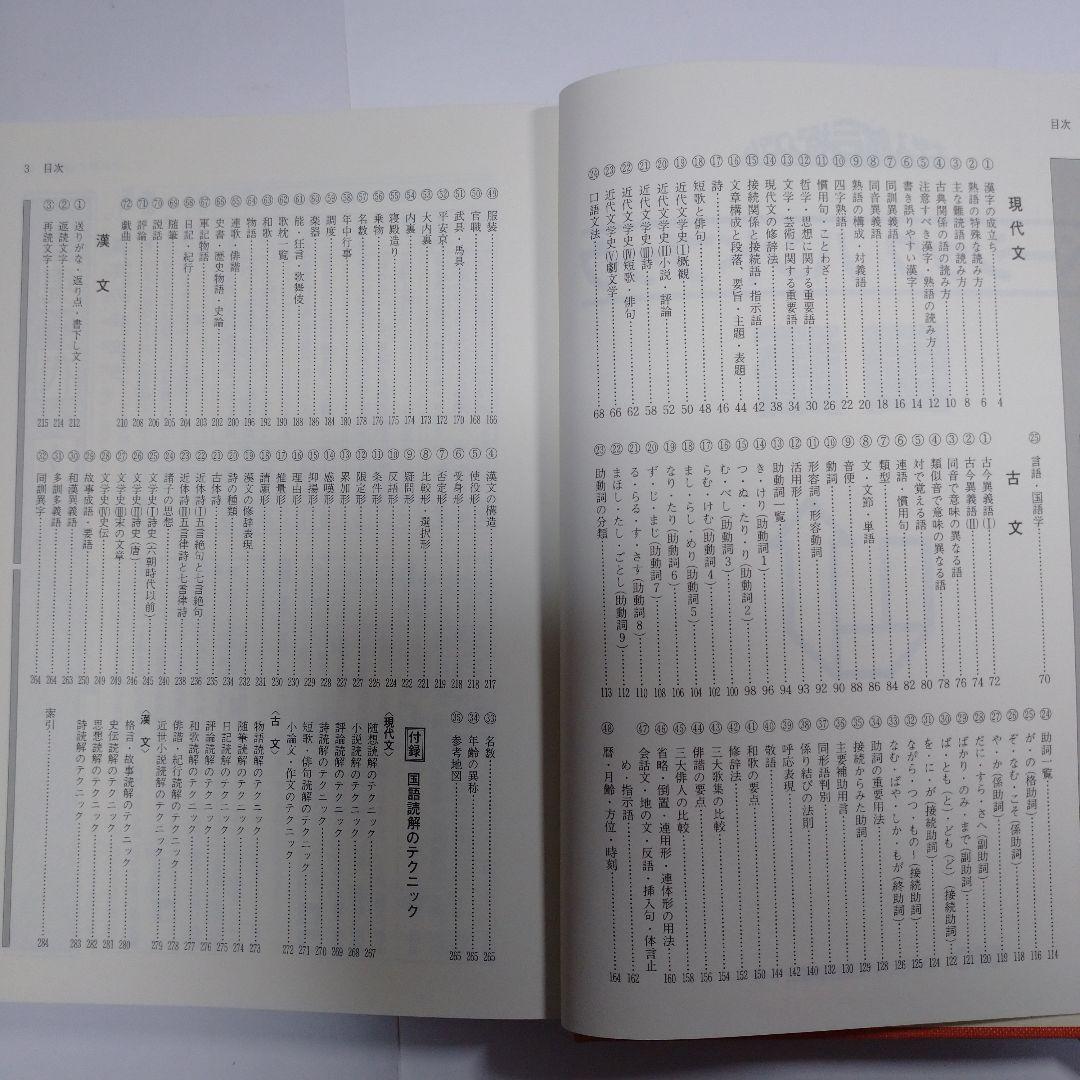 目次
現代文
① 漢字の成立ち 4
② 熟語の特殊な読み方 6
③ 主な難読語の読み方 8
④ 古典関係の語の読み方 10
⑤ 注意すべき漢字・熟語の読み方 12
⑥ 書き誤りやすい漢字 14
⑦ 同訓異義語 16
⑧ 同音異義語 18
⑨ 熟語の構成 対義語 20
⑩ 四字熟語 22
⑪ 慣用句・ことわざ 26
⑫ 哲学・思想に関する重要語 30
⑬ 文学・芸術に関する重要語 34
⑭ 現代文の修辞法 38
⑮ 接続関係と接続語・指示語 42
⑯ 文章構成と段落、要旨・主題・表題 44
⑰ 詩 46
⑱ 短歌と俳句 48
⑲ 近代文学史(Ⅰ)概観 50
⑳ 近代文学史(Ⅱ)小説・評論 52
㉑ 近代文学史(Ⅲ)詩 58
㉒ 近代文学史(Ⅳ)短歌・俳句 62
㉓ 近代文学史(Ⅴ)劇文学 66
㉔ 口語文法 68
㉕ 言語・国語学 70
古文
① 古今異義語(Ⅰ) 72
② 古今異義語(Ⅱ) 74
③ 同音で意味の異なる語 76
④ 類似音で意味の異なる語 78
⑤ 対で覚える語 80
⑥ 連語・慣用句 82
⑦ 類型 84
⑧ 文・文節・単語 86
⑨ 音便 88
⑩ 動詞 90
⑪ 形容詞・形容動詞 92
⑫ 活用形 93
⑬ 助動詞一覧 94
⑭ き・けり(助動詞1) 96
⑮ つ・ぬ・たり・り(助動詞2) 98
⑯ む・べし(助動詞3) 100
⑰ らむ・けむ(助動詞4) 102
⑱ まし・らし・めり(助動詞5) 104
⑲ なり・たり(助動詞6) 106
⑳ ず・じ・まじ(助動詞7) 108
㉑ る・らる・す・さす(助動詞8) 110
㉒ まほし・たし・ごとし(助動詞9) 112
㉓ 助動詞の分類 113
㉔ 助詞一覧 114
㉕ が・の(格助詞) 116
㉖ ぞ・なむ・こそ(係助詞) 118
㉗ や・か(係助詞) 119
㉘ だに・すら・さへ(副助詞) 120
㉙ ばかり・のみ・まで(副助詞) 121
㉚ ば・とも(と)・ども(ど)(接続助詞) 122
㉛ を・に・が(接続助詞) 124
㉜ ながら・つつ・もの〜(接続助詞) 125
㉝ なむ・ばや・しか・もが(終助詞) 126
㉞ 助詞の重要用法 128
㉟ 接続からみた助詞 129
㊱ 主要補助用言 130
㊲ 同形語判別 132
㊳ 係り結びの法則 140
㊴ 呼応表現 142
㊵ 敬語 144
㊶ 和歌の要点 150
㊷ 修辞法 152
㊸ 三大歌集の比較 154
㊹ 俳諧の要点 156
㊺ 三大俳人の比較 158
㊻ 省略・倒置・連用形・連体形の用法 160
㊼ 会話文・地の文・反語・挿入句・体言止め・指示語 162
㊽ 暦・月齢・方位・時刻 164
3 目次
㊾ 服装 166
㊿ 官職 168
51 武具・馬具 170
52 平安京 172
53 大内裏 173
54 内裏 174
55 寝殿造り 175
56 乗物 176
57 名数 178
58 年中行事 180
59 調度 184
60 楽器 186
61 能・狂言・歌舞伎 188
62 歌枕一覧 190
63 和歌 192
64 物語 196
65 連歌・俳諧 200
66 史書・歴史物語・史論 202
67 軍記物語 203
68 日記・紀行 204
69 随筆 205
70 説話 206
71 評論 208
72 戯曲 210
漢文
① 送りがな・返り点・書下し文 212
② 返読文字 214
③ 再読文字 215
④ 漢文の構造 217
⑤ 使役形 218
⑥ 受身形 218
⑦ 否定形 219
⑧ 比較形・選択形 221
⑨ 疑問形 222
⑩ 反語形 224
⑪ 条件形 225
⑫ 限定形 226
⑬ 累加形 227
⑭ 感嘆形 227
⑮ 抑揚形 228
⑯ 理由形 229
⑰ 推量形 230
⑱ 請願形 230
⑲ 漢文の修辞表現 231
⑳ 詩の種類 234
㉑ 古体詩 235
㉒ 近体詩(Ⅰ)五言絶句と七言絶句 236
㉓ 近体詩(Ⅱ)五言律詩と七言律詩 238
㉔ 諸子の思想 240
㉕ 文学史(Ⅰ)詩史(六朝時代以前) 245
㉖ 文学史(Ⅱ)詩史(唐) 246
㉗ 文学史(Ⅲ)宋の文章 249
㉘ 文学史(Ⅳ)史伝 249
㉙ 故事成語・要語 250
㉚ 和漢異義語 263
㉛ 多訓異義語 264
㉜ 同訓異字 264
㉝ 名数 265
㉞ 年齢の異称 265
㉟ 参考地図 265
付録 国語読解のテクニック
〈現代文〉
随想読解のテクニック 267
小説読解のテクニック 268
評論読解のテクニック 269
詩読解のテクニック 270
短歌・俳句読解のテクニック 271
小論文・作文のテクニック 272
〈古文〉
物語読解のテクニック 273
随筆読解のテクニック 274
日記読解のテクニック 275
評論読解のテクニック 276
和歌読解のテクニック 277
俳諧・紀行読解のテクニック 278
近世小説読解のテクニック 279
〈漢文〉
格言・故事読解のテクニック 280
史伝読解のテクニック 281
思想読解のテクニック 282
詩読解のテクニック 283
索引 284